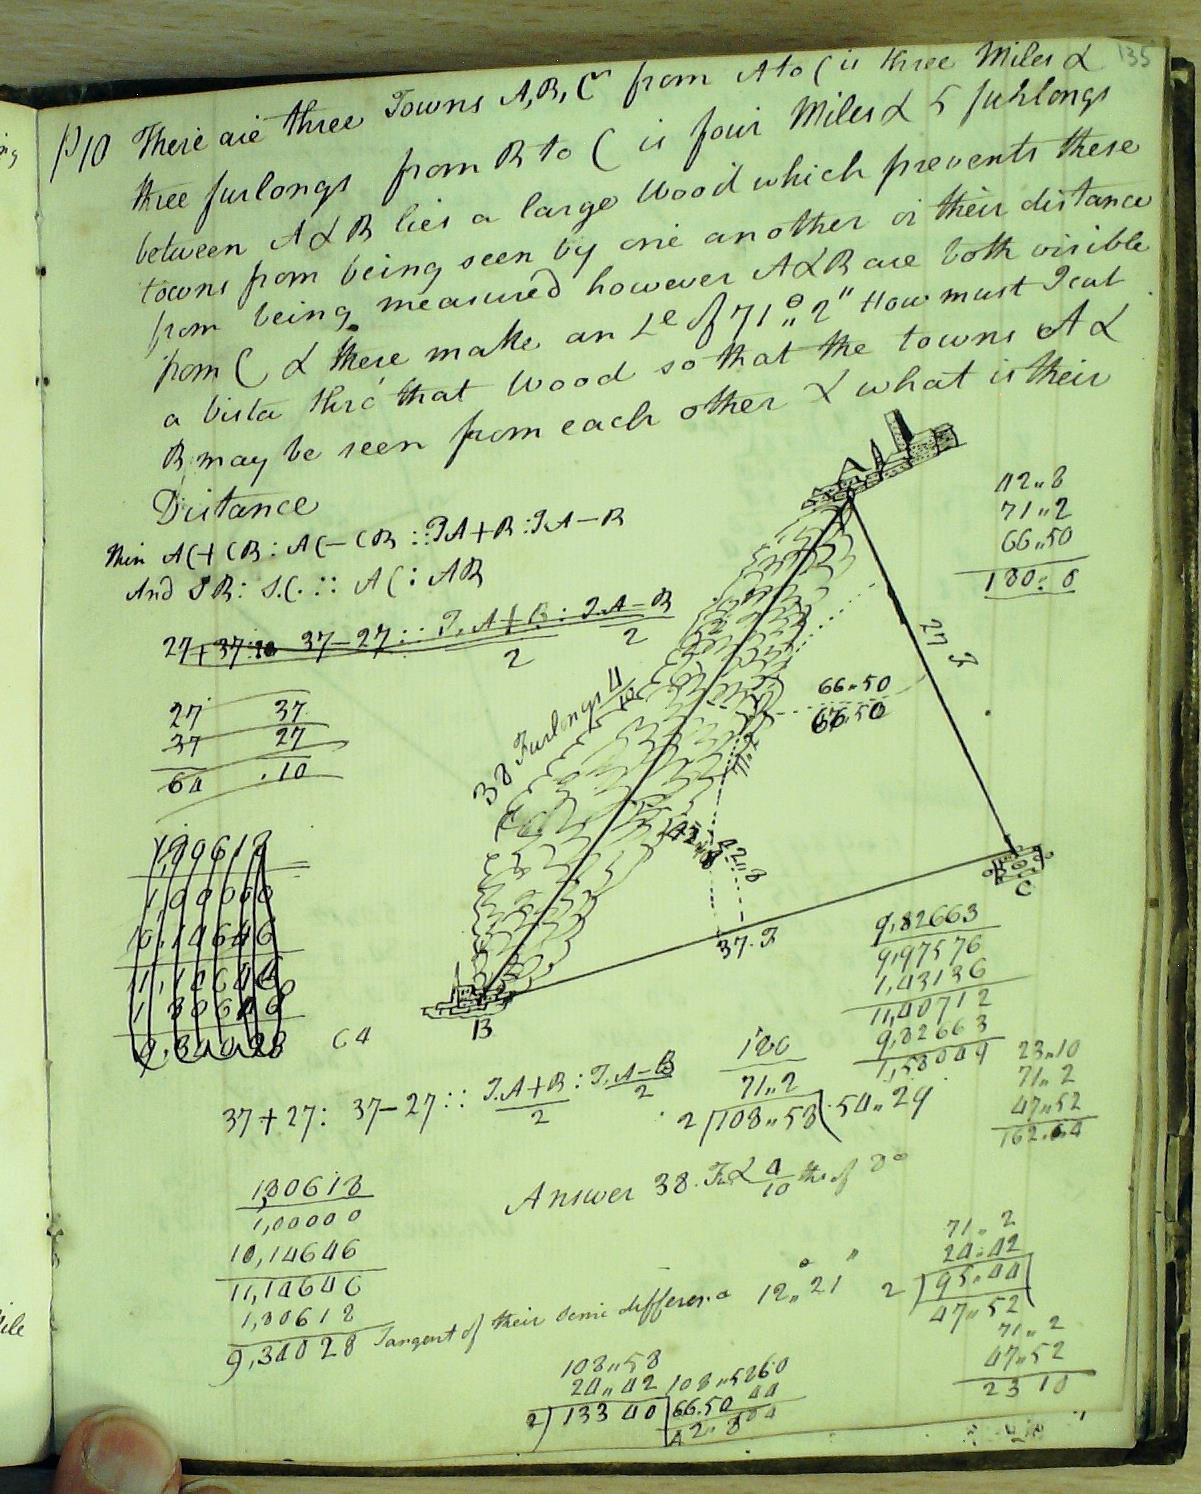 135
P10 There are three Towns A, B, C from A to C is three Miles &
three furlongs from B to C is four Miles & 5 furlongs
between A & B lies a large Wood which prevents these
towns from being seen by one another or their distance
from being measured however A & B are both visible
from C & there make an Le of 71°„2" How must I cut
a Vista thro' that Wood so that the towns A &
B may be seen from each other & what is their
Distance
Then AC+CB : AC-CB :: T A+B : T A-B
And S B : S.C. :: AC : AB
27+37: 37-27 :: T, A+B : T.A-B
2 2
27 37
37 27
64 .10
42„8
71„2
66„50
180„0
27 F
38 Furlongs 4/10
66„50
66„50
42„8
42„8
37. F
B
C
9,82663
9,97576
1,43136
11,40712
9,82663
1,58049
64
37+27: 37-27 :: T.A+B : T.A-B
2 2
180
71„2
2)108„58(54„29
23„10
71„2
47„52
162„64
Answer 38. F & 4/10 ths of Do
1,80618
1,00000
10,14646
11,14646
1,80618
9,34028 Tangent of their Semi difference 12°„21"
71„2
24„42
2)95„44
47„52
71„2
47„52
23 10
108„58
24„42
2)133 40
108„5260
66„50 44
42„8 04